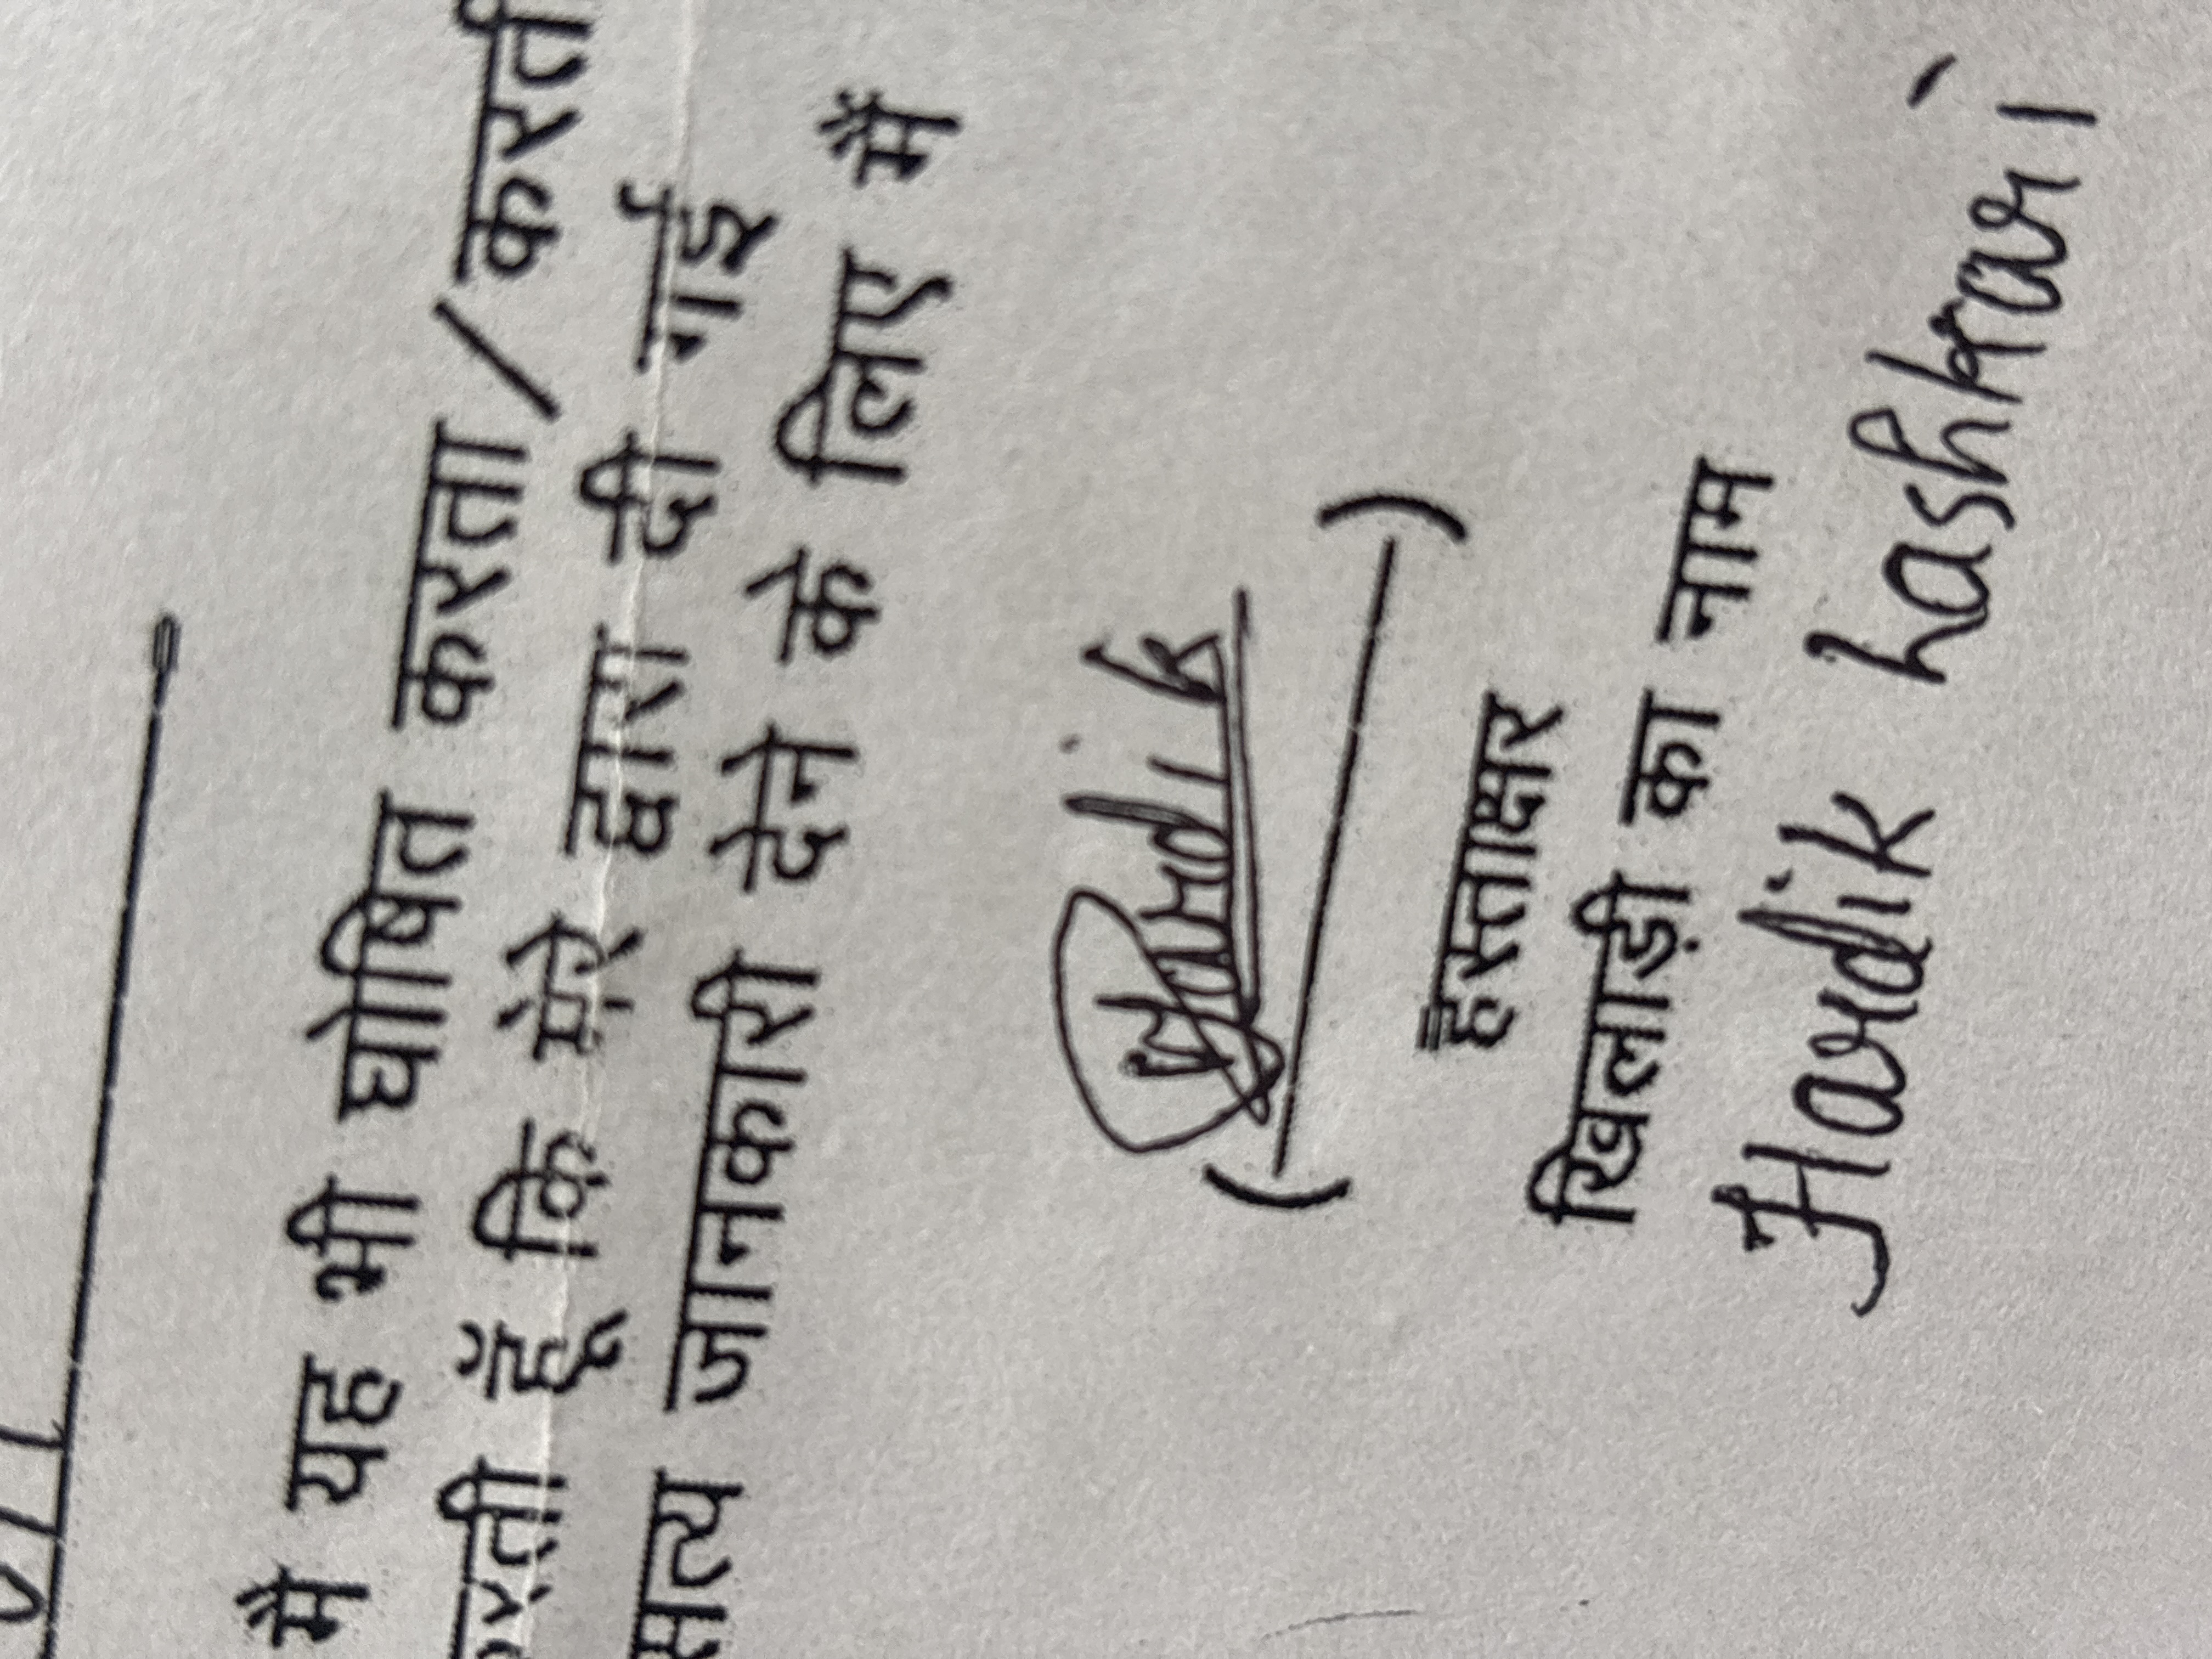 मै यह भी घोषित करता/करती
करती हूँ कि मेरे द्वारा दी गई
सत्य जानकारी देने के लिए मैं
Hardik
(————)
हस्ताक्षर
खिलाड़ी का नाम
Hardik hashkari